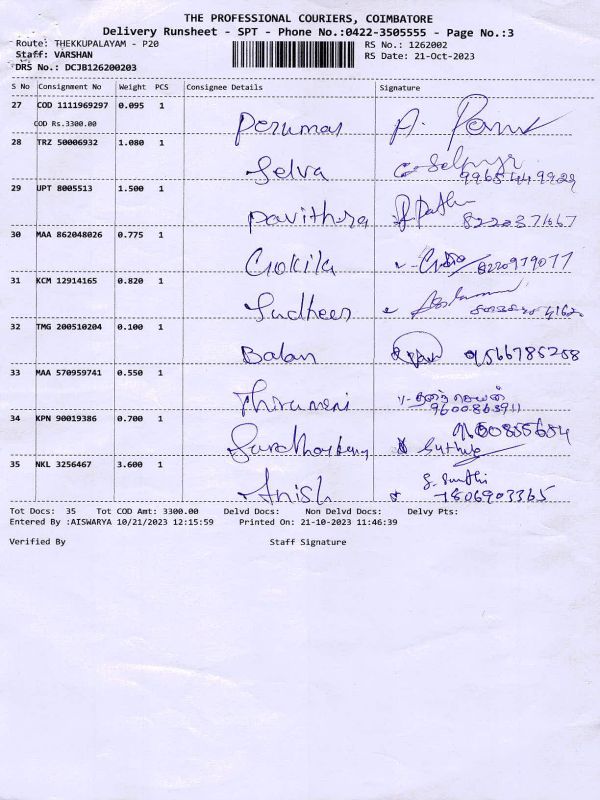 THE PROFESSIONAL COURIERS, COIMBATORE
Delivery Runsheet - SPT - Phone No.:0422-3505555 - Page No.:3
Route: THEKKUPALAYAM - P20 RS No.: 1262002
Staff: VARSHAN RS Date: 21-Oct-2023
DRS No.: DCJB126200203
S No Consignment No Weight PCS Consignee Details Signature
27 COD 1111969297 0.095 1 Perumal
COD Rs.3300.00
28 TRZ 50006932 1.080 1 Selva
29 UPT 8005513 1.500 1 Pavithra
30 MAA 862048026 0.775 1 Gokila 8220979077
31 KCM 12914165 0.820 1 Sudheer
32 TMG 200510204 0.100 1 Balan 9566785258
33 MAA 570959741 0.550 1 Thirumeni
9600863911
34 KPN 90019386 0.700 1
35 NKL 3256467 3.600 1 Anish 7806903365
Tot Docs: 35 Tot COD Amt: 3300.00 Delvd Docs: Non Delvd Docs: Delvy Pts:
Entered By :AISWARYA 10/21/2023 12:15:59 Printed On: 21-10-2023 11:46:39
Verified By Staff Signature